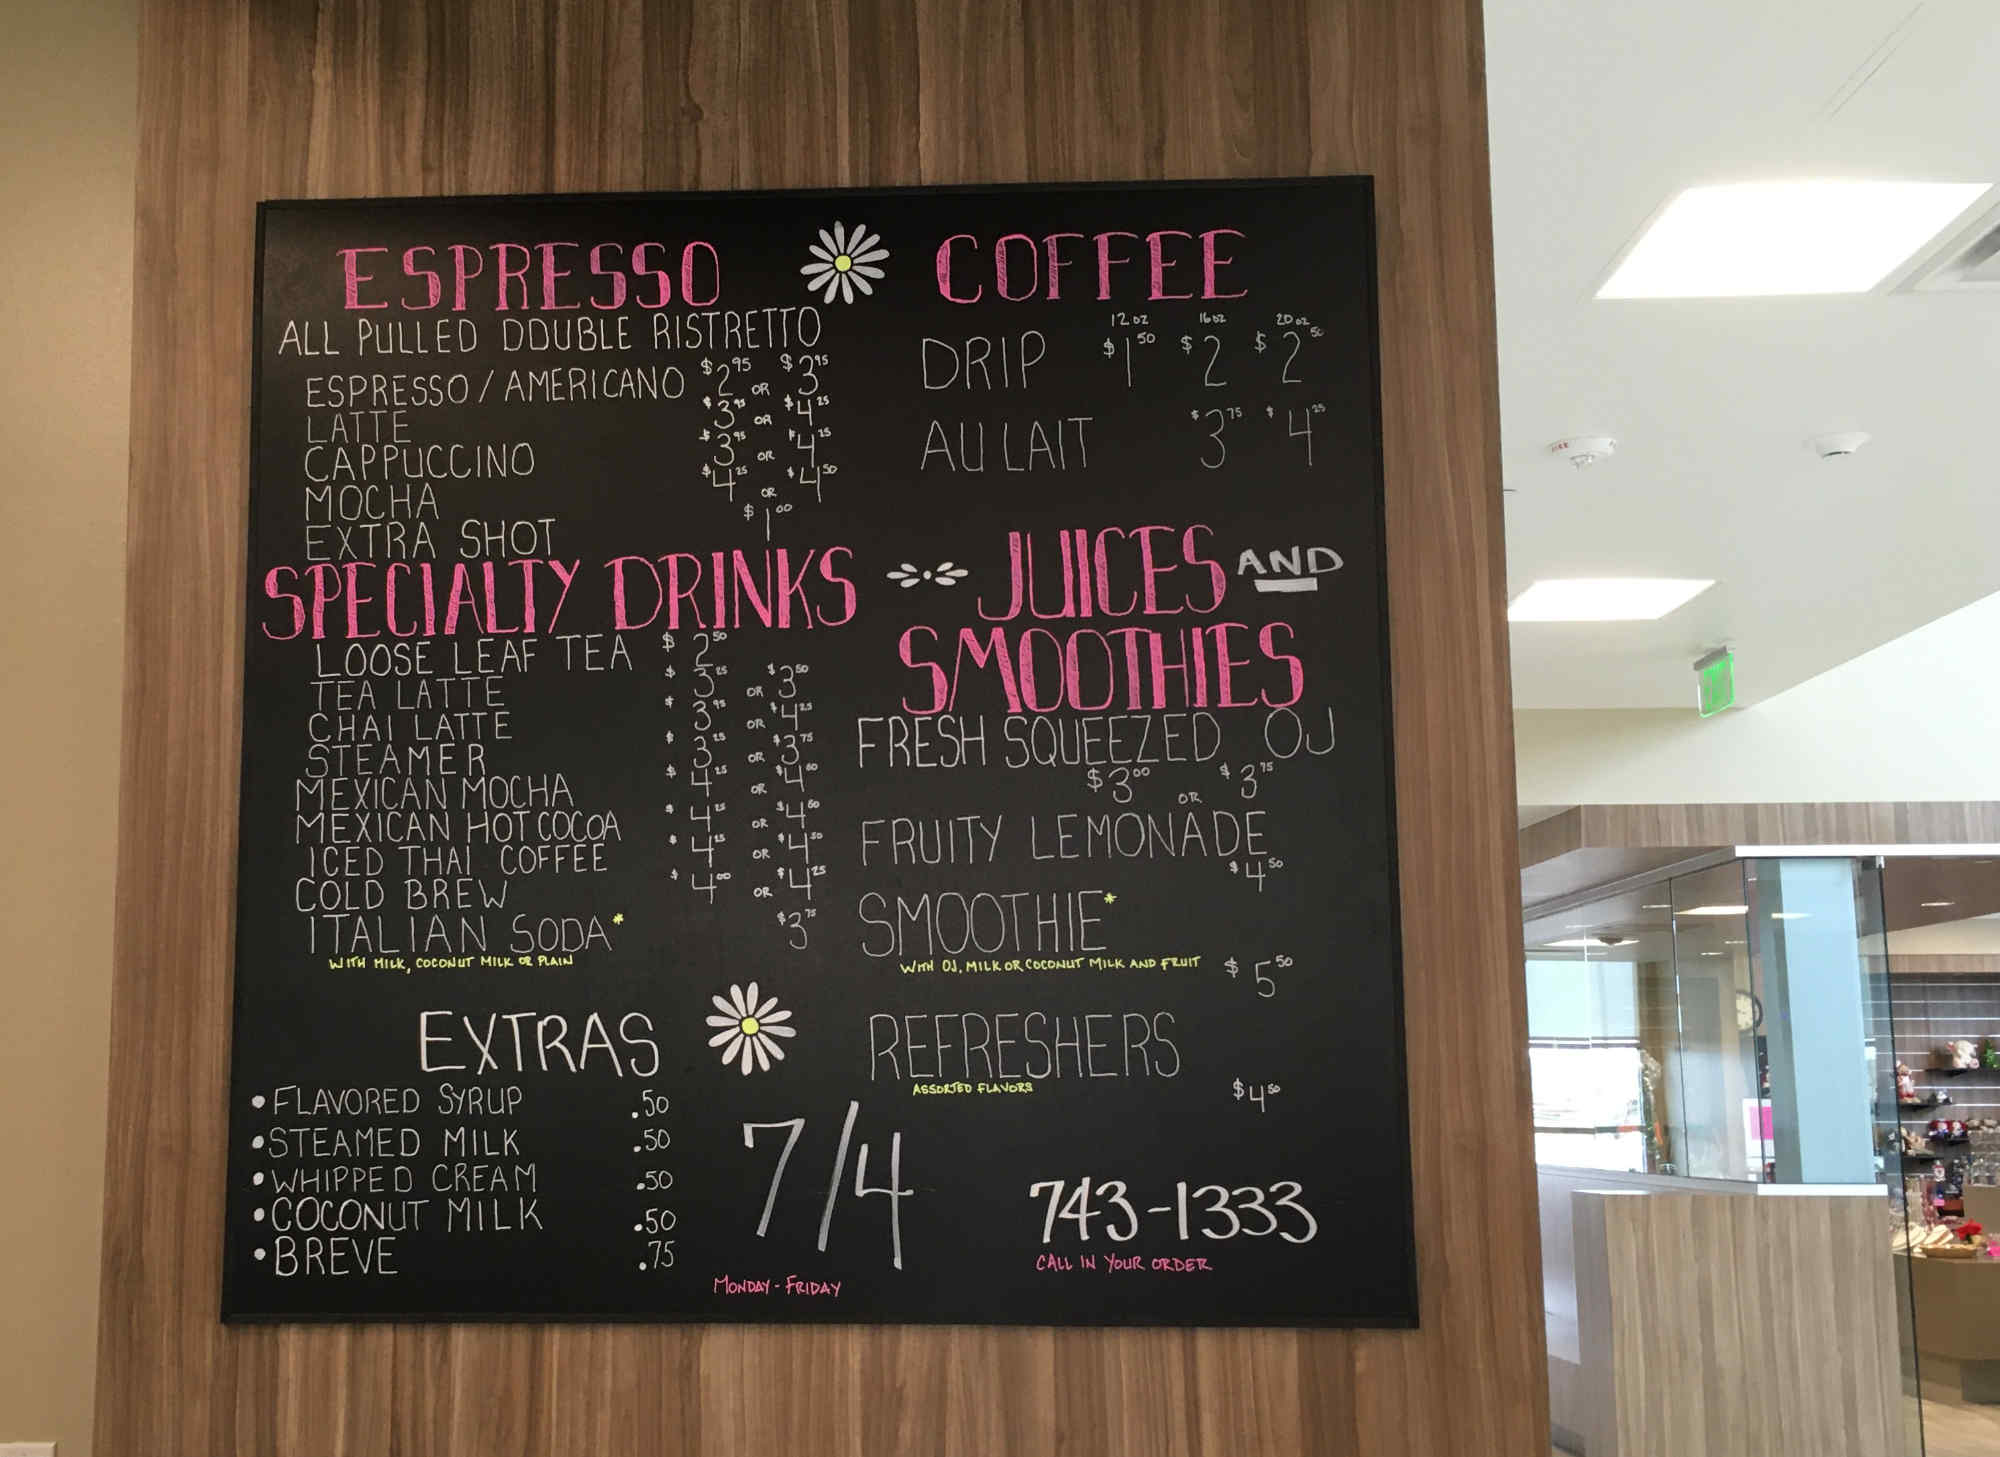 ESPRESSO
ALL PULLED DOUBLE RISTRETTO
ESPRESSO / AMERICANO $2.95 OR $3.95
LATTE $3.95 OR $4.25
CAPPUCCINO $3.95 OR $4.25
MOCHA $4.25 OR $4.50
EXTRA SHOT $1.00
SPECIALTY DRINKS
LOOSE LEAF TEA $2.50
TEA LATTE $3.25 OR $3.50
CHAI LATTE $3.95 OR $4.25
STEAMER $3.25 OR $3.75
MEXICAN MOCHA $4.25 OR $4.60
MEXICAN HOT COCOA $4.25 OR $4.60
ICED THAI COFFEE $4.25 OR $4.50
COLD BREW $4.00 OR $4.25
ITALIAN SODA* $3.75
WITH MILK, COCONUT MILK OR PLAIN
EXTRAS
• FLAVORED SYRUP .50
• STEAMED MILK .50
• WHIPPED CREAM .50
• COCONUT MILK .50
• BREVE .75
COFFEE
12oz 16oz 20oz
DRIP $1.50 $2 $2.50
AU LAIT $3.75 $4.25
JUICES AND
SMOOTHIES
FRESH SQUEEZED OJ
$3.00 OR $3.75
FRUITY LEMONADE
$4.50
SMOOTHIE*
WITH OJ, MILK OR COCONUT MILK AND FRUIT
$5.50
REFRESHERS
ASSORTED FLAVORS
$4.50
7/4
MONDAY - FRIDAY
743-1333
CALL IN YOUR ORDER